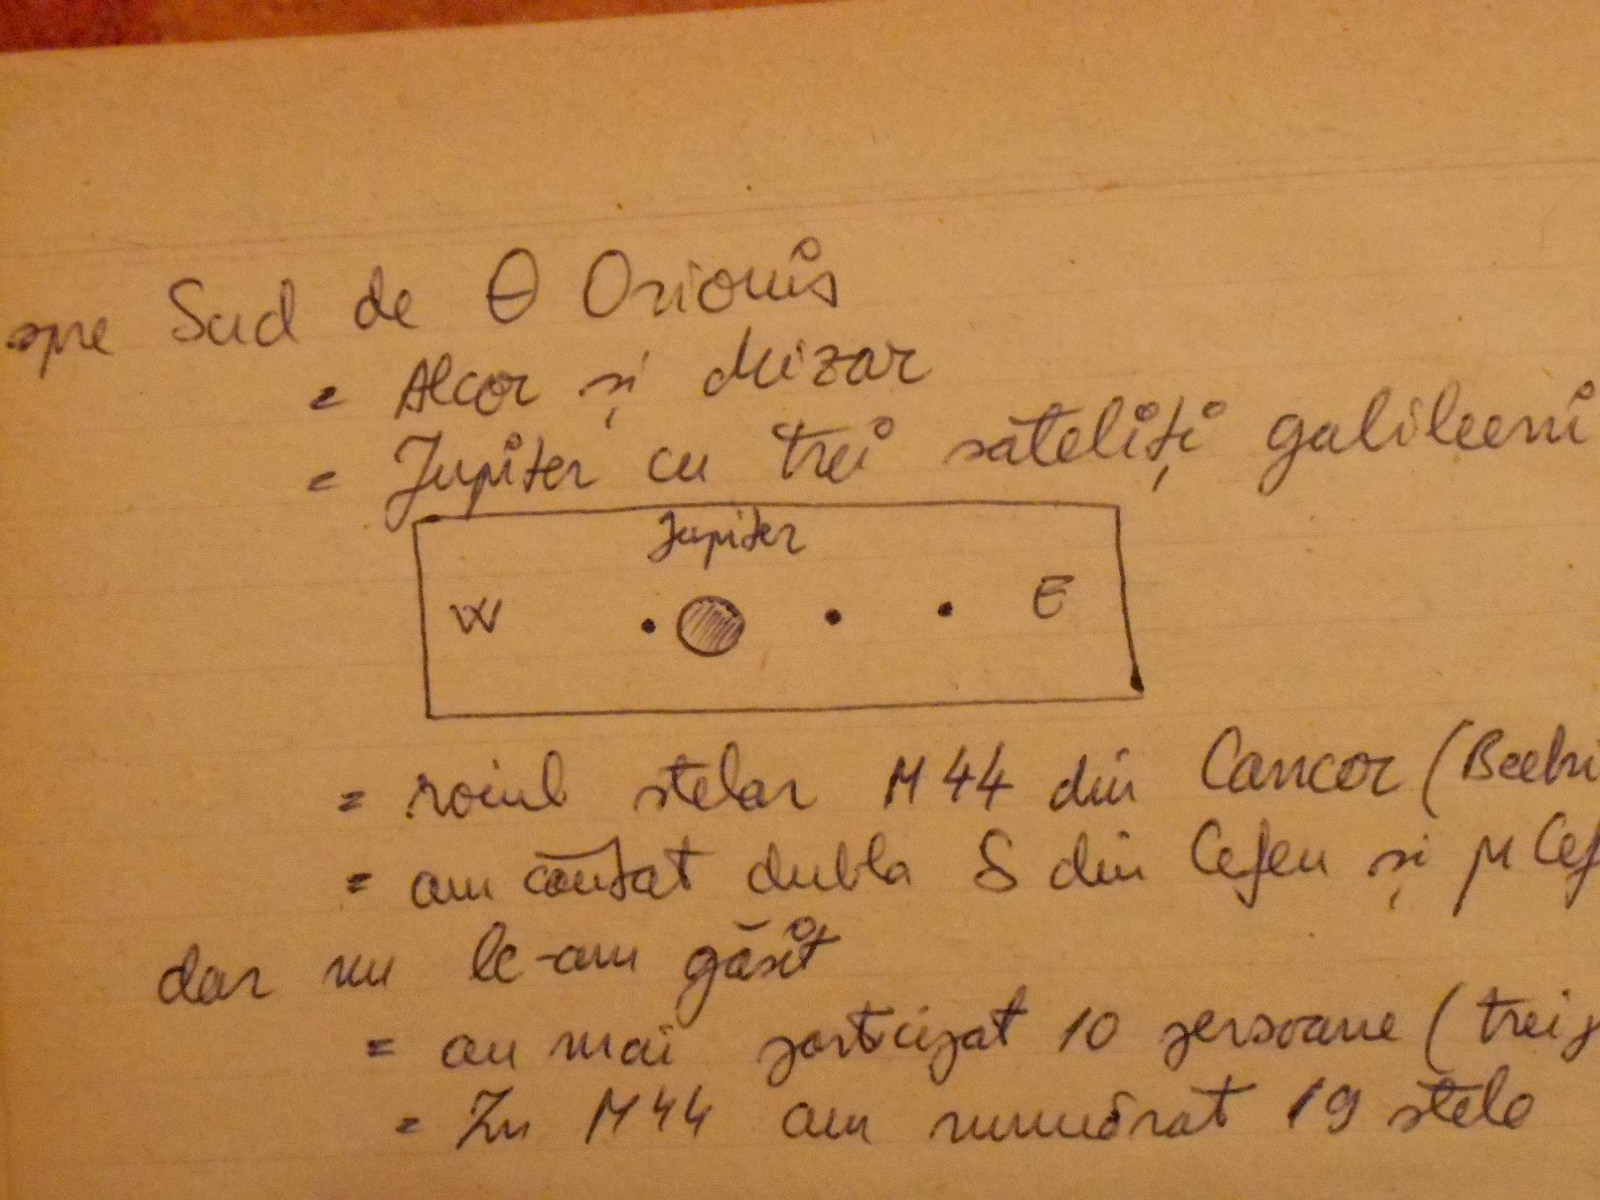 spre Sud de θ Orionis
= Alcor și Mizar
= Jupiter cu trei sateliți galileeni
Jupiter
W E
= roiul stelar M44 din Cancer (Beehi
= am căutat dubla δ din Cefeu și μ Cef
dar nu le-am găsit
= au mai participat 10 persoane (trei
= În M44 am numărat 19 stele